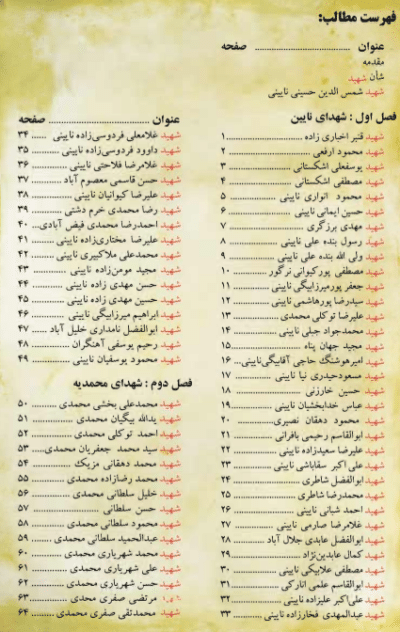 فهرست مطالب:
عنوان ............................ صفحه
مقدمه
شأن شهید
شهید شمس الدین حسینی نایینی
فصل اول : شهدای نایین
شهید قنبر اخباری زاده ............................ ۱
شهید محمود ارفعی ............................ ۲
شهید یوسفعلی اشکستانی ............................ ۳
شهید مصطفی اشکستانی ............................ ۴
شهید محمود انواری نایینی ............................ ۵
شهید حسین ایمانی نایینی ............................ ۶
شهید مهدی برزگری ............................ ۷
شهید رسول بنده علی نایینی ............................ ۸
شهید ولی الله بنده علی نایینی ............................ ۹
شهید مصطفی پورکیوانی نرگور ............................ ۱۰
شهید جعفر پورمیرزابیگی نایینی ............................ ۱۱
شهید سیدرضا پورهاشمی نایینی ............................ ۱۲
شهید علیرضا توکلی محمدی ............................ ۱۳
شهید محمدجواد جبلی نایینی ............................ ۱۴
شهید مجید جهان پناه ............................ ۱۵
شهید امیرهوشنگ حاجی آقابیگی‌نایینی... ۱۶
شهید مسعودحیدری نیا نایینی ............................ ۱۷
شهید حسین خارزنی ............................ ۱۸
شهید عباس خدابخشیان نایینی ............................ ۱۹
شهید محمود دهقان نصیری ............................ ۲۰
شهید ابوالقاسم رحیمی بافرانی ............................ ۲۱
شهید علیرضا سعیدزاده نایینی ............................ ۲۲
شهید علی اکبر سقاباشی نایینی ............................ ۲۳
شهید ابوالفضل شاطری ............................ ۲۴
شهید محمدرضا شاطری ............................ ۲۵
شهید احمد شبانی نایینی ............................ ۲۶
شهید غلامرضا صارمی نایینی ............................ ۲۷
شهید ابوالفضل عابدی جلال آباد ............................ ۲۸
شهید کمال عابدین‌نژاد ............................ ۲۹
شهید مصطفی علابیکی نایینی ............................ ۳۰
شهید ابوالقاسم علمی انارکی ............................ ۳۱
شهید علی‌اکبر علیزاده نایینی ............................ ۳۲
شهید عبدالمهدی فخارزاده نایینی ............................ ۳۳
عنوان ............................ صفحه
شهید غلامعلی فردوسی‌زاده نایینی ...... ۳۴
شهید داوود فردوسی‌زاده نایینی ............................ ۳۵
شهید غلامرضا فلاحتی نایینی ............................ ۳۶
شهید حسن قاسمی معصوم آباد ............................ ۳۷
شهید علیرضا کیوانیان نایینی ............................ ۳۸
شهید رضا محمدی خرم دشتی ............................ ۳۹
شهید احمدرضا محمدی فیض آبادی.... ۴۰
شهید علیرضا مختاری‌زاده نایینی ............................ ۴۱
شهید محمدعلی ملاکبیری نایینی ............................ ۴۲
شهید مجید مومن‌زاده نایینی ............................ ۴۳
شهید حسن مهدی زاده نایینی ............................ ۴۴
شهید حسین مهدی زاده نایینی ............................ ۴۵
شهید ابراهیم میرزابیگی نایینی ............................ ۴۶
شهید ابوالفضل نامداری خلیل آباد ...... ۴۷
شهید رحیم یوسفی آهنگران ............................ ۴۸
شهید محمود یوسفیان نایینی ............................ ۴۹
فصل دوم : شهدای محمدیه
شهید محمدعلی بخشی محمدی ............................ ۵۰
شهید یدالله بیگیان محمدی ............................ ۵۱
شهید احمد توکلی محمدی ............................ ۵۲
شهید سید محمد جعفریان محمدی.... ۵۳
شهید محمد دهقانی مزیک ............................ ۵۴
شهید محمد رضازاده محمدی ............................ ۵۵
شهید خلیل سلطانی محمدی ............................ ۵۶
شهید حسن سلطانی ............................ ۵۷
شهید محمود سلطانی محمدی ............................ ۵۸
شهید عبدالحمید سلطانی محمدی ............................ ۵۹
شهید محمد شهریاری محمدی ............................ ۶۰
شهید علی شهریاری محمدی ............................ ۶۱
شهید حسن شهریاری محمدی ............................ ۶۲
شهید مرتضی صفری محمدی ............................ ۶۳
شهید محمدتقی صفری محمدی ............................ ۶۴